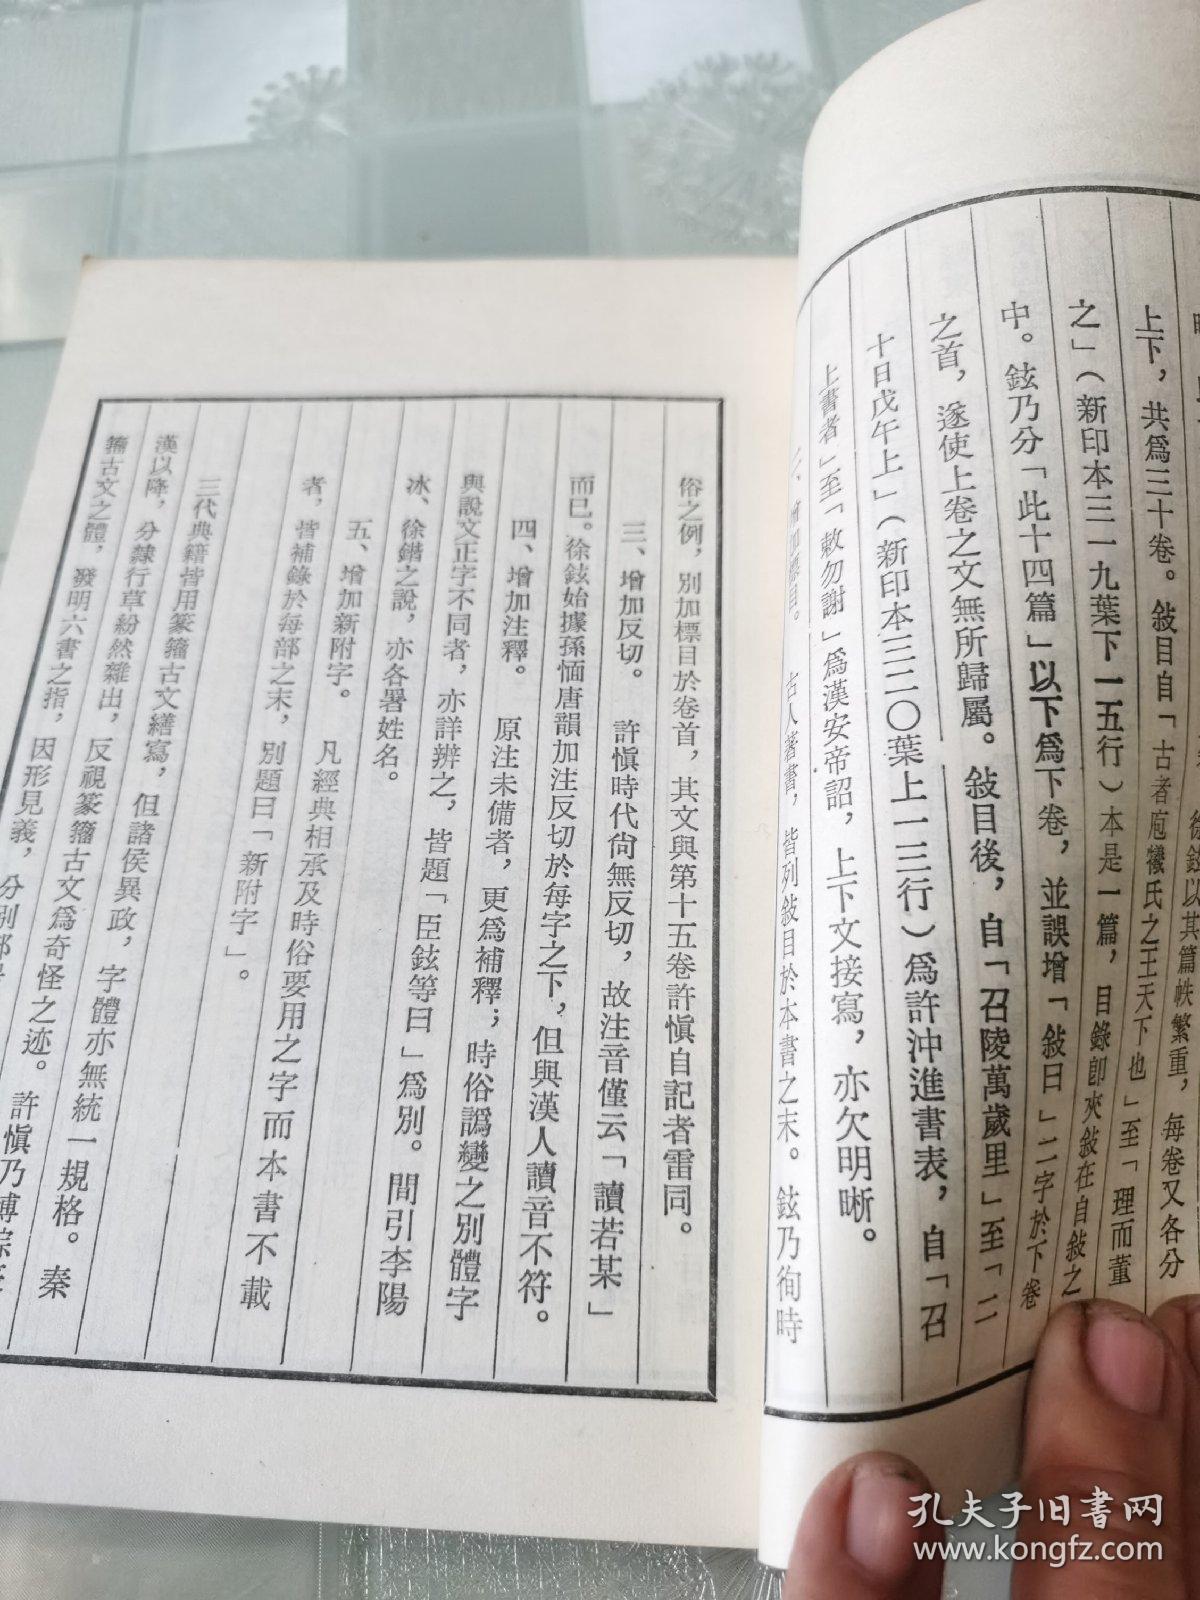 上下，共爲三十卷。敍目自「古者庖犧氏之王天下也」至「理而董
之」（新印本三一九葉下一五行）本是一篇，目錄卽夾敍在自敍之
中。鉉乃分「此十四篇」以下爲下卷，並誤增「敍曰」二字於下卷
之首，遂使上卷之文無所歸屬。敍目後，自「召陵萬歲里」至「二
十日戊午上」（新印本三二〇葉上一三行）爲許沖進書表，自「召
上書者」至「敕勿謝」爲漢安帝詔，上下文接寫，亦欠明晰。
二、增加標目。　古人著書，皆列敍目於本書之末。鉉乃徇時
俗之例，別加標目於卷首，其文與第十五卷許愼自記者雷同。
三、增加反切。　許愼時代尙無反切，故注音僅云「讀若某」
而已。徐鉉始據孫愐唐韻加注反切於每字之下，但與漢人讀音不符。
四、增加注釋。　原注未備者，更爲補釋；時俗譌變之別體字
與說文正字不同者，亦詳辨之，皆題「臣鉉等曰」爲別。間引李陽
冰、徐鍇之說，亦各署姓名。
五、增加新附字。　凡經典相承及時俗要用之字而本書不載
者，皆補錄於每部之末，別題曰「新附字」。
三代典籍皆用篆籀古文繕寫，但諸侯異政，字體亦無統一規格。秦
漢以降，分隸行草紛然雜出，反視篆籀古文爲奇怪之迹。許愼乃博綜
籀古文之體，發明六書之指，因形見義，分別部
孔夫子旧书网
www.kongfz.com